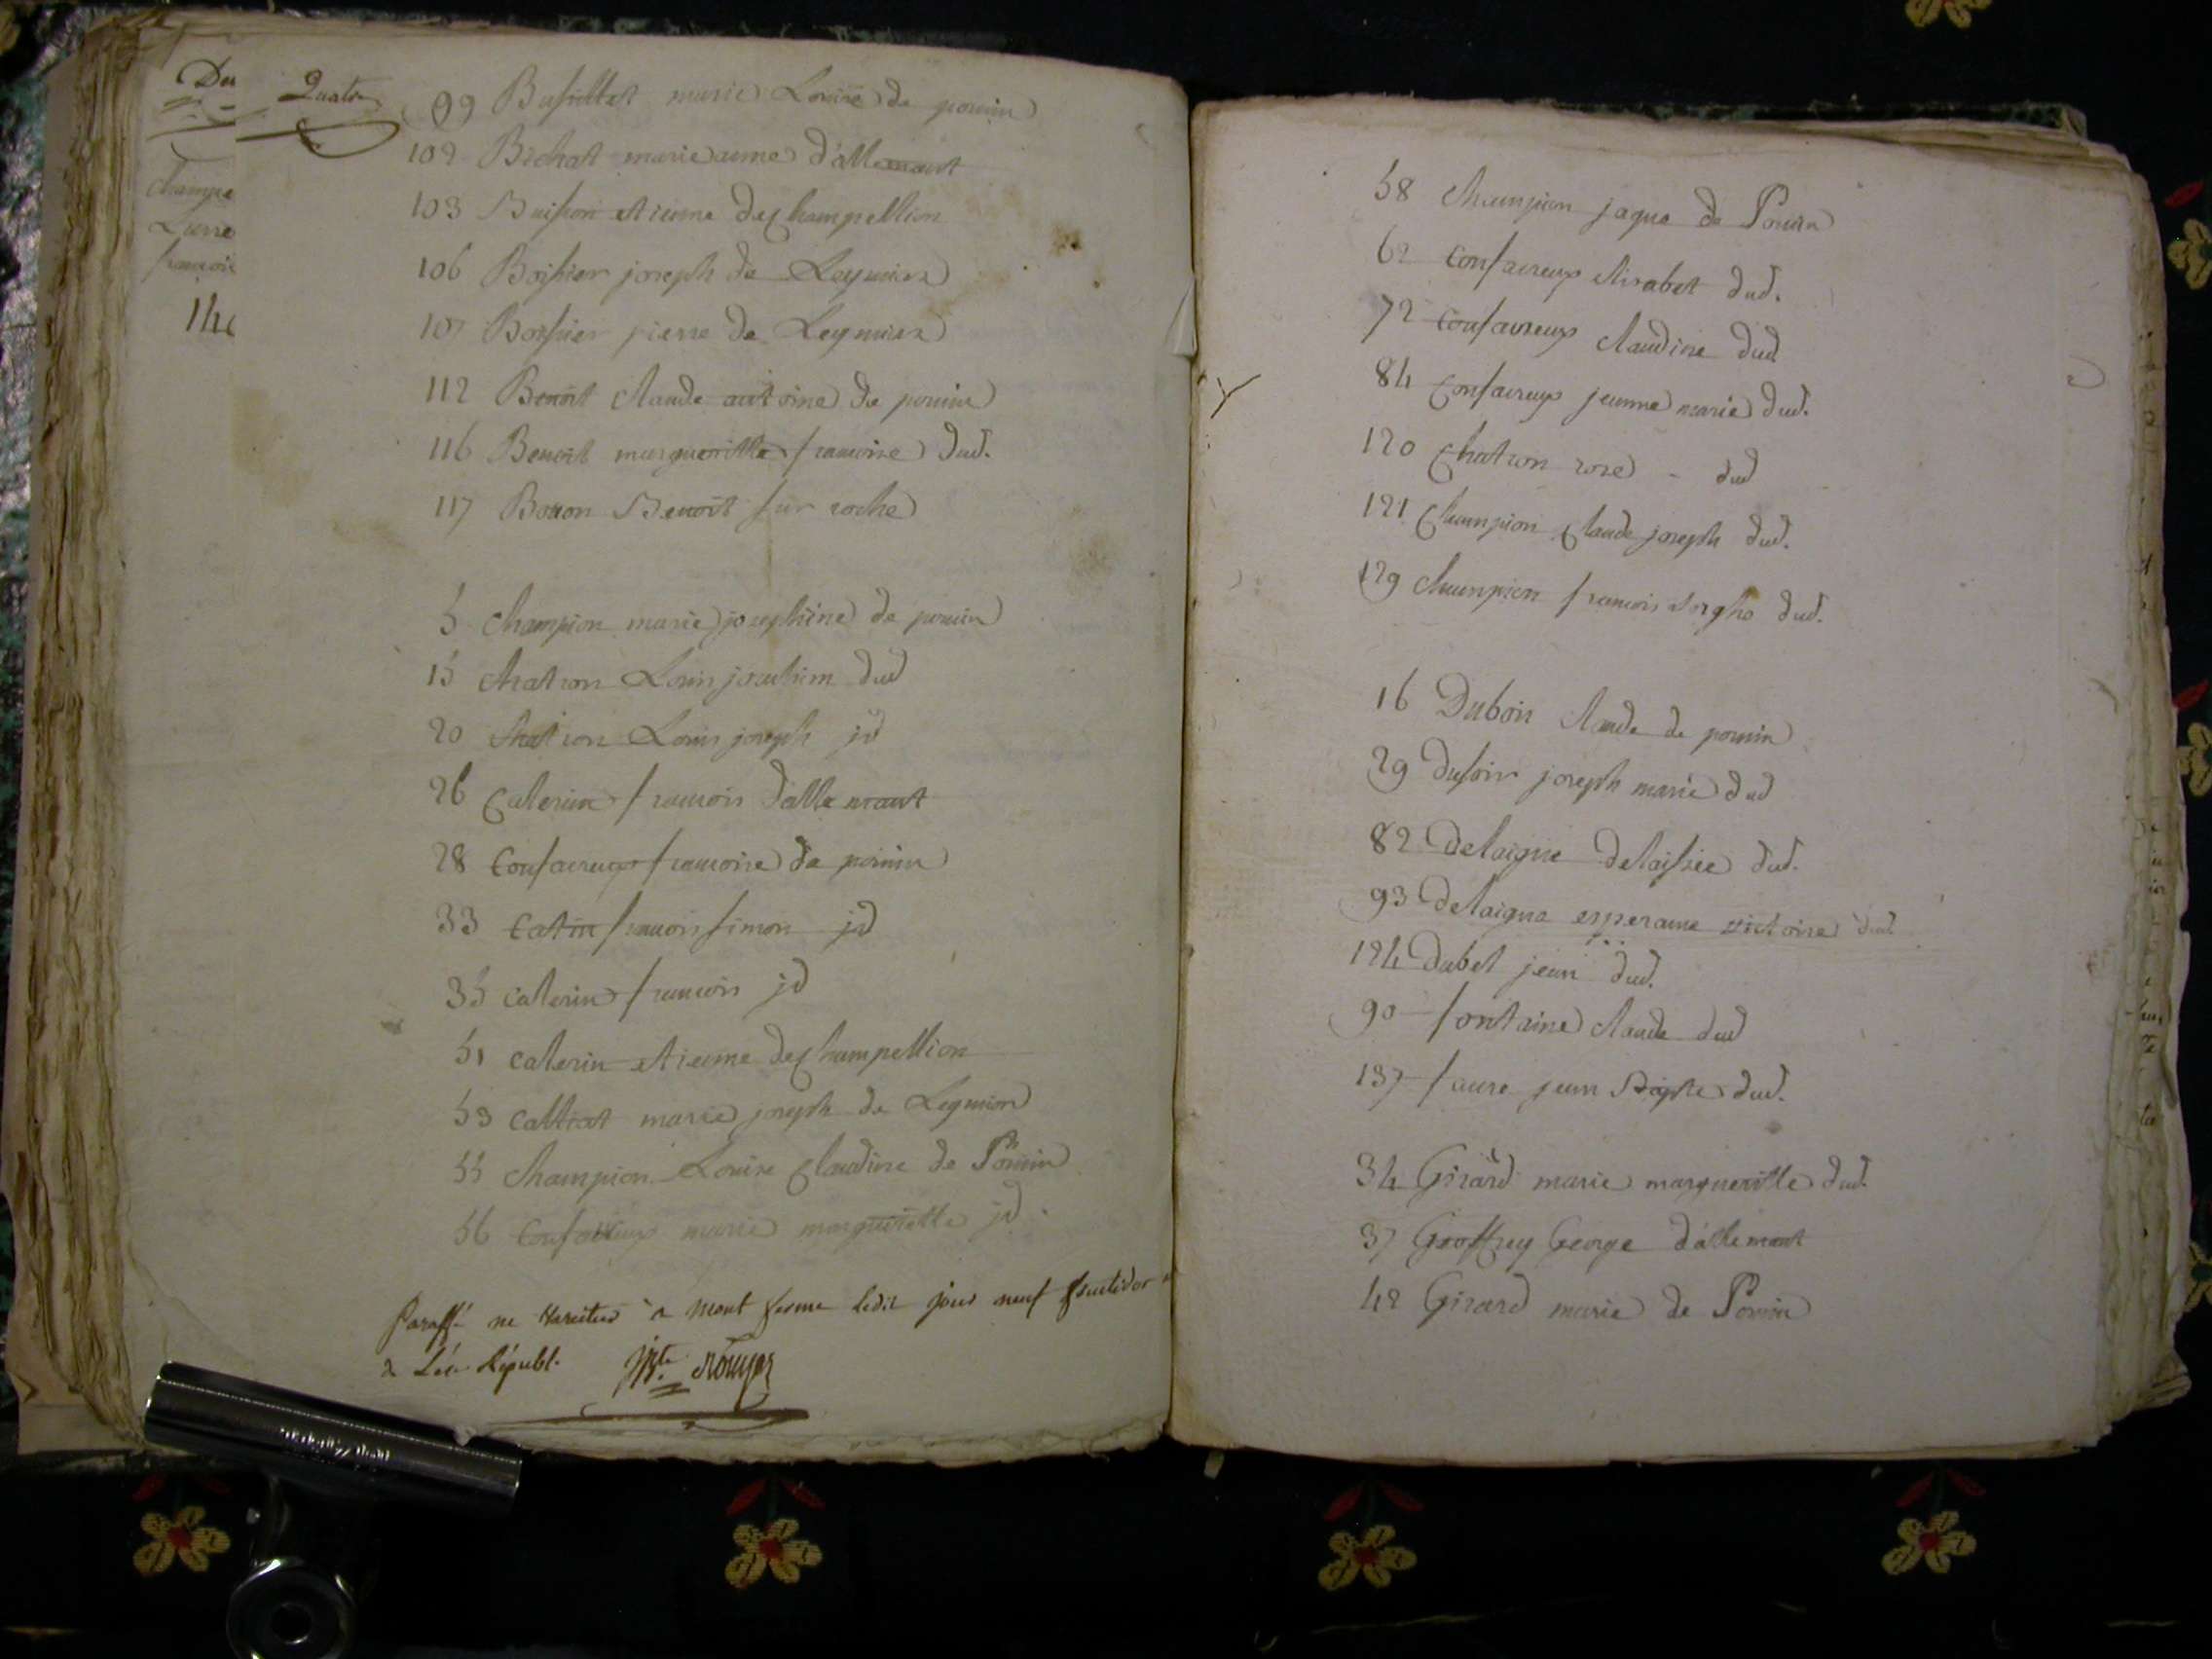 Quatre
99 Busillet marie Louise de pouin
102 Bichat marie aimé d'allemant
103 Buisson etienne de Champellion
106 Boissier joseph de Leymier
107 Boissier pierre de Leymier
112 Benoit Claude antoine de pouin
116 Benoit margueritte francoise dud.
117 Bouon Benoit sur roche
5 Champion marie josephine de pouin
15 Chatron Louis joachim dud
20 Chatron Louis joseph jd
26 Caterin francois d'allemant
28 Confavreux francoise de pouin
33 Catin francois simon jd
35 Caterin francois jd
51 Caterin etienne de Champellion
53 Calliat marie joseph de Leymion
55 Champion Louise Claudine de Pouin
56 Confavreux marie margueritte jd.
Paraffé ne varietur a Montferme ledit jour neuf fructidor
2 de la Républ.
58 Champion jaque de Pouin
62 Confavreux elisabet dud.
72 Confavreux Claudine dud
84 Confavreux jeanne marie dud.
120 Chatron rose - dud
121 Champion Claude joseph dud.
129 Champion francois dud.
16 Dubois Claude de pouin
29 dubois joseph marie dud
82 Delaigue delaissée dud.
93 Delaigue esperance victoire dud.
124 Dabet jean dud.
90 fontaine Claude dud
137 faure jean Baptiste dud.
34 Girard marie margueritte dud.
37 Geoffrey George d'allemant
42 Girard marie de Pouin